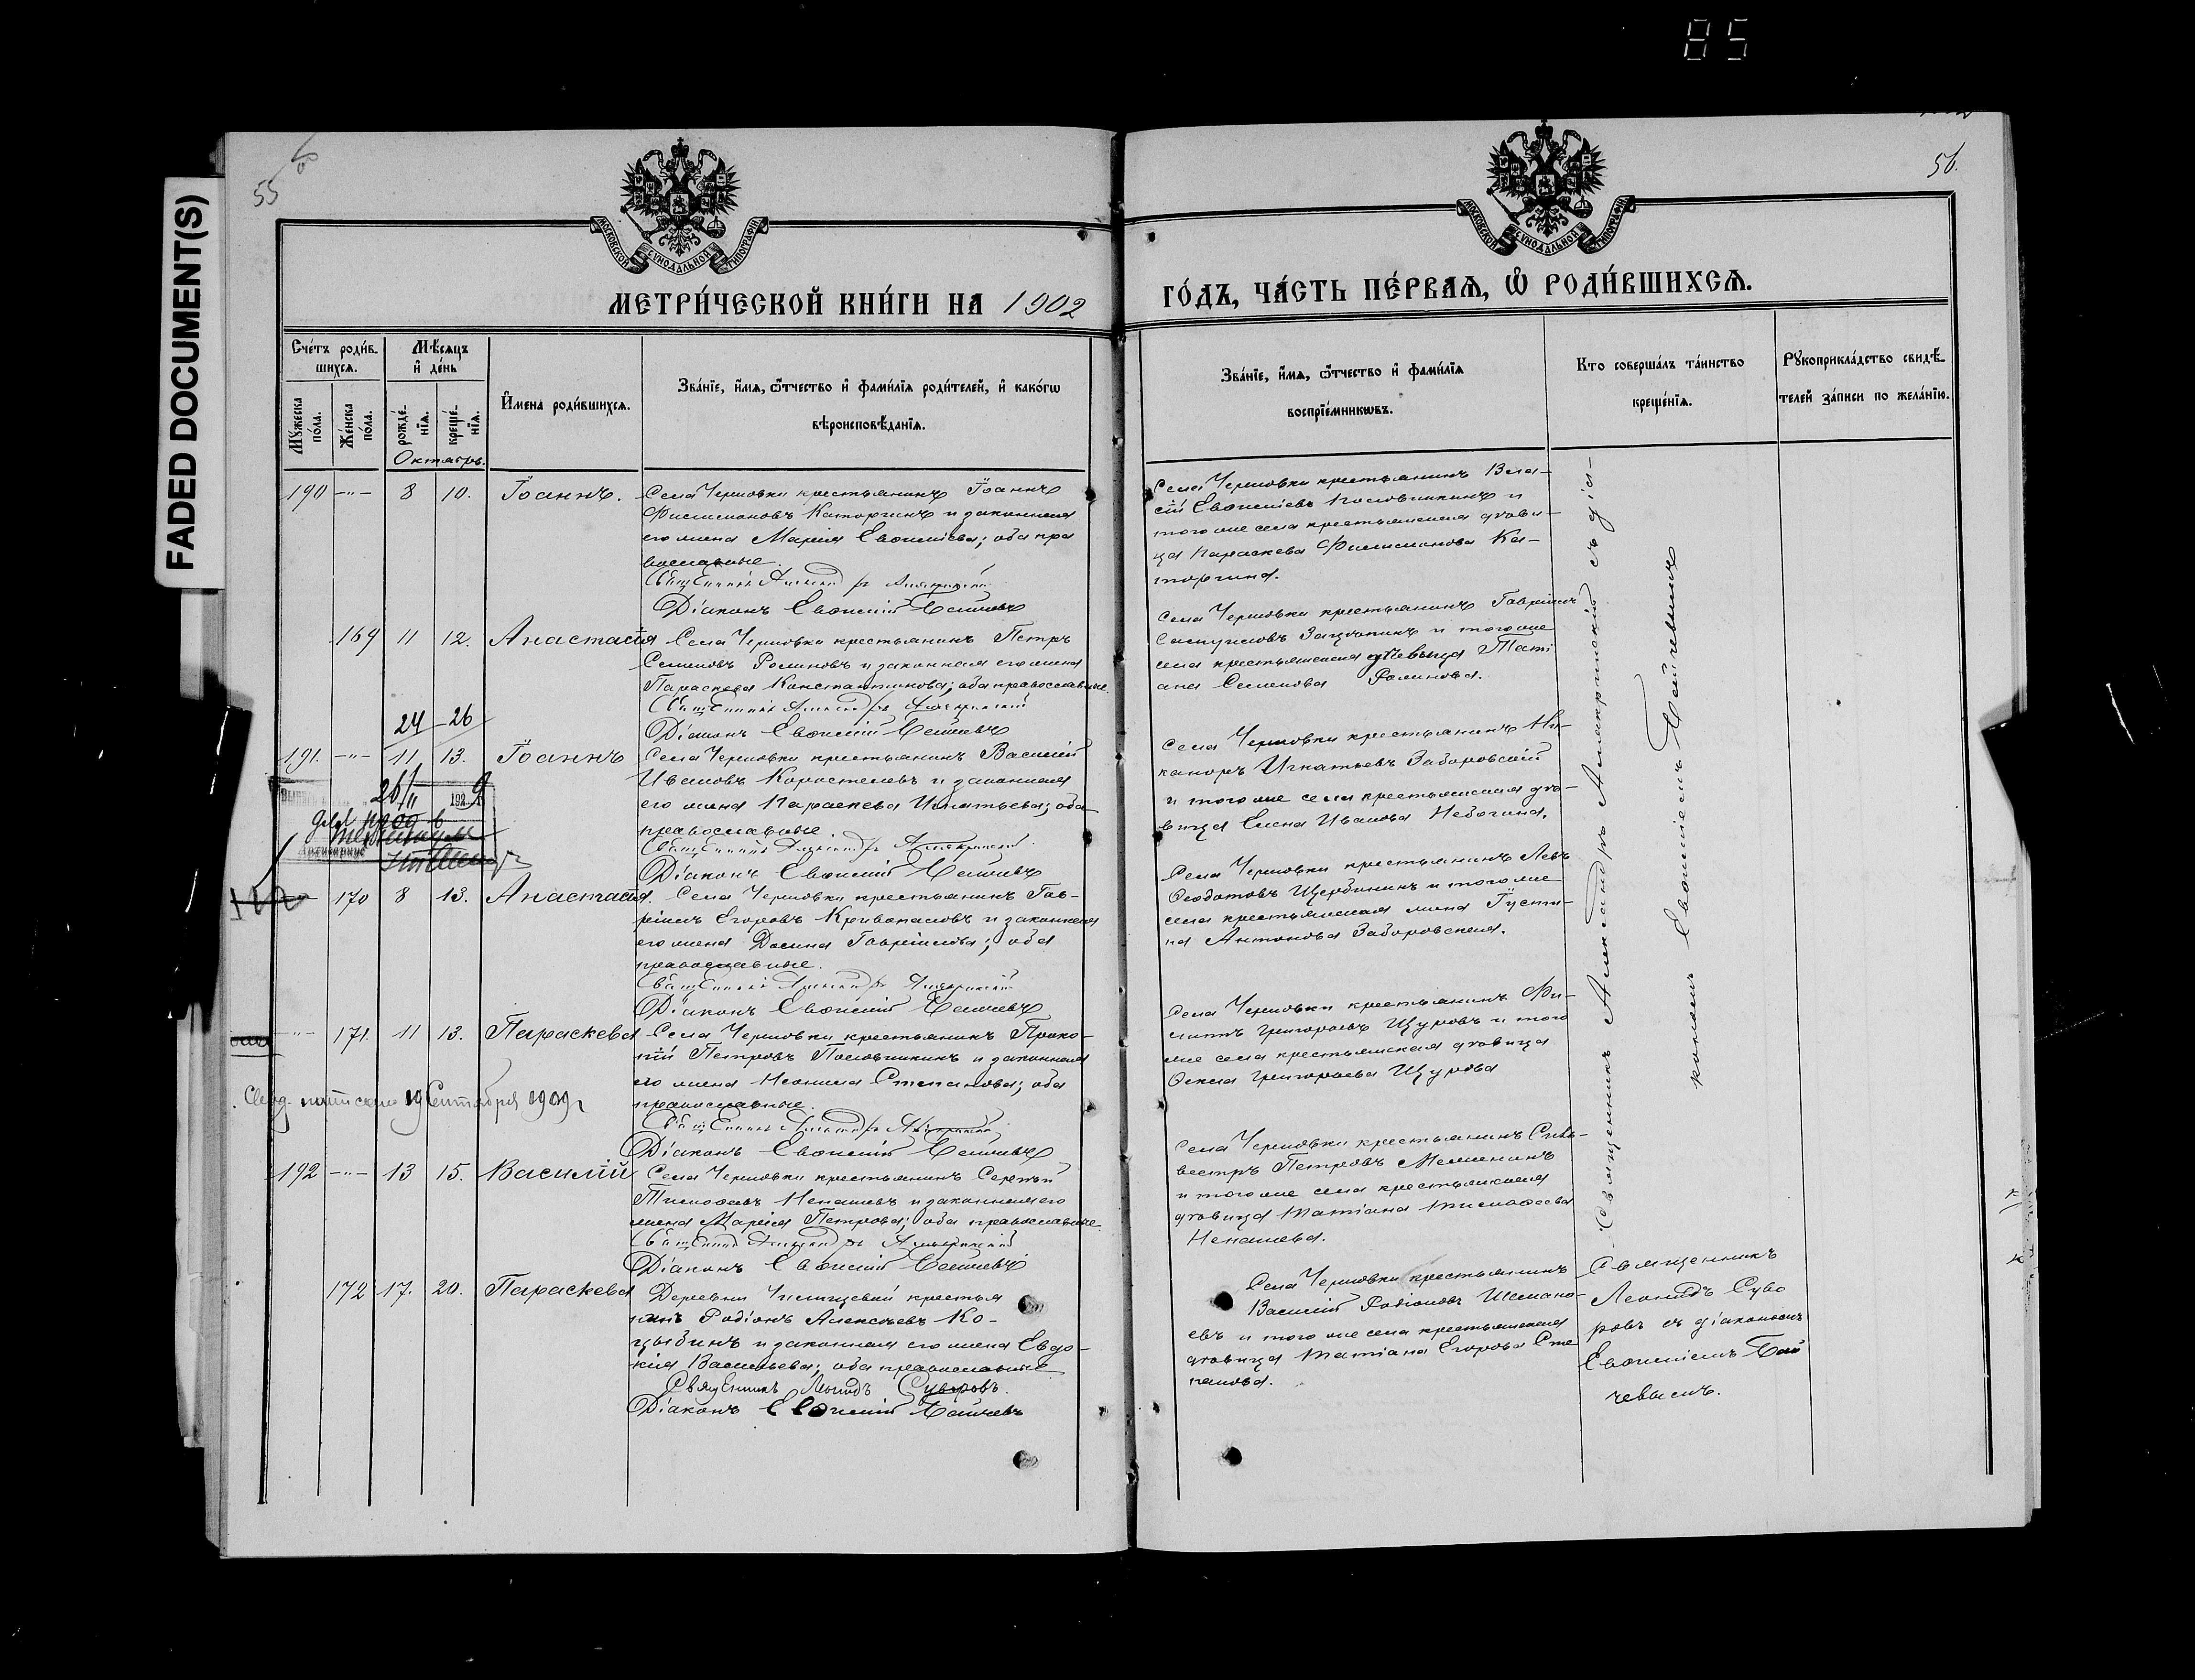 85
FADED DOCUMENT(S)
55
56.
МОСКОВСКОЙ СѴНОДАЛЬНОЙ ТИПОГРАФІИ
МОСКОВСКОЙ СѴНОДАЛЬНОЙ ТИПОГРАФІИ
МЕТРИ́ЧЕСКОЙ КНИ́ГИ НА 1902
ГО́ДЪ, ЧА́СТЬ ПЕ́РВАѦ, Ѽ РОДИ́ВШИХСѦ.
Сче́тъ роди́в-
шихсѧ.
Мꙋ́жеска
по́ла.
Же́нска
по́ла.
Мѣ́сѧцъ
и҆ де́нь
рожде́-
нїѧ.
креще́-
нїѧ.
Октябрь.
И҆мена роди́вшихсѧ.
Зва́нїе, и҆́мѧ, ѻ҆́тчество и҆ фами́лїѧ роди́телей, и҆ како́гѡ
вѣроисповѣ́данїѧ.
Зва́нїе, и҆́мѧ, ѻ҆́тчество и҆ фами́лїѧ
воспрїе́мникѡвъ.
Кто соверша́лъ та́инство
креще́нїѧ.
Рꙋкоприкла́дство свидѣ́-
телей за́писи по жела́нїю.
190 -"- 8 10. Іоаннъ.
Села Черновки крестьянинъ Іоаннъ
Филимоновъ Каторгинъ и законная
его жена Марія Евфиміева; оба пра
вославные.
Священникъ Александръ
Діаконъ Евфимій
Села Черновки крестьянинъ Вла-
сій Евфиміевъ Пословшикинъ и
того же села крестьянская дѣви-
ца Параскева Филимонова Ка-
торгина.
169 11 12. Анастасія
Села Черновки крестьянинъ Петръ
Семеновъ Фоминовъ и законная его жена
Параскева Константинова; оба православные.
Священникъ Александръ
Діаконъ Евфимій
Села Черновки крестьянинъ Гавріилъ
Самуиловъ и того же
села крестьянская дѣвица Таті
ана Семенова Фоминова.
24 - 26
191. -"- 11 13. Іоаннъ
Села Черновки крестьянинъ Василій
Ивановъ Коростелевъ и законная
его жена Параскева Игнатьева; оба
православные.
Священникъ Александръ
Діаконъ Евфимій
Села Черновки крестьянинъ Ни-
каноръ Игнатьевъ Заборовскій
и того же села крестьянская дѣ-
вица Елена Иванова Небогина.
26/II 1929
170 8 13. Анастасія.
Села Черновки крестьянинъ Гав-
ріилъ Егоровъ Кривопаловъ и законная
его жена Домна Гавріилова; оба
православные.
Священникъ Александръ
Діаконъ Евфимій
Села Черновки крестьянинъ Левъ
Ѳеодотовъ Щербининъ и того же
села крестьянская жена Іусти-
на Антонова Заборовская.
-"- 171. 11 13. Параскева
Села Черновки крестьянинъ Проко-
пій Петровъ Пословшикинъ и законная
его жена Неонила Степанова; оба
православные.
Священникъ Александръ
Діаконъ Евфимій
Села Черновки крестьянинъ Фи-
липпъ Григорьевъ Щуровъ и того
же села крестьянская дѣвица
Ѳекла Григорьева Щурова
19 Сентября 1909 г
192 -"- 13 15. Василій
Села Черновки крестьянинъ Сергѣй
Тимофеевъ Ненашевъ и законная его
жена Марія Петрова; оба православные.
Священникъ Александръ
Діаконъ Евфимій
Села Черновки крестьянинъ Силь-
вестръ Петровъ
и того же села крестьянская
дѣвица Татіана Тимофеева
Ненашева.
172 17. 20. Параскева
Деревни крестья
нинъ Родіонъ Алексѣевъ Ко-
цыбинъ и законная его жена Евдо-
кія Васильева; оба православные
Священникъ Леонидъ Суворовъ.
Діаконъ Евфимій
Села Черновки крестьянинъ
Василій Родіоновъ Шемана-
евъ и того же села крестьянская
дѣвица Татіана Егорова Сте
панова.
Священникъ Александръ съ діа-
кономъ Евфиміемъ
Священникъ
Леонидъ Суво
ровъ съ діакономъ
Евфиміемъ Бай
чевымъ.